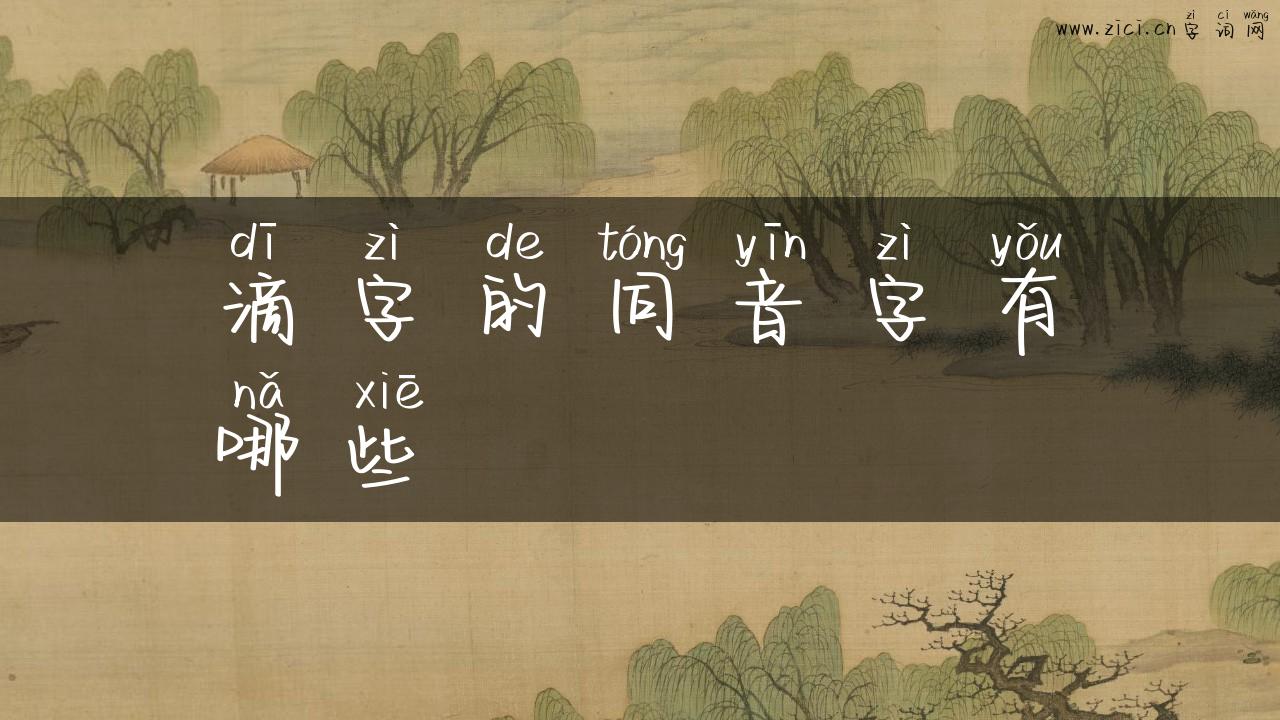 zì cí wǎng
www.zici.cn 字 词 网
dī zì de tóng yīn zì yǒu
滴 字 的 同 音 字 有
nǎ xiē
哪 些